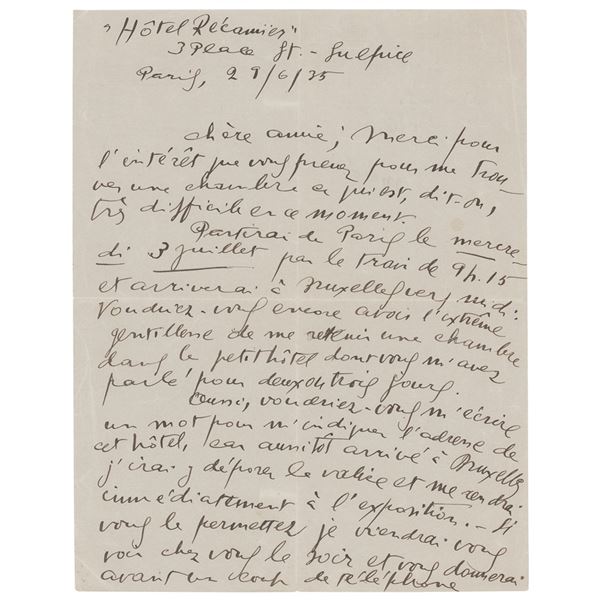 "Hôtel Récamier"
3 Place St.-Sulpice
Paris, 29/6/35
chère amie; Merci pour
l'intérêt que vous prenez pour me trou-
ver une chambre ce qui est, dit-on,
très difficile en ce moment.
Partirai de Paris le mercre-
di 3 juillet par le train de 9h.15
et arriverai à Bruxelles vers midi.
Voudriez-vous encore avoir l'extrême
gentillesse de me retenir une chambre
dans le petit hôtel dont vous m'avez
parlé pour deux ou trois jours.
aussi, voudriez-vous m'écrire
un mot pour m'indiquer l'adresse de
cet hôtel, car aussitôt arrivé à Bruxelles
j'irai y déposer la valise et me rendrai
immédiatement à l'exposition.- Si
vous le permettez je viendrai vous
voir chez vous le soir et vous donnerai
avant un coup de téléphone